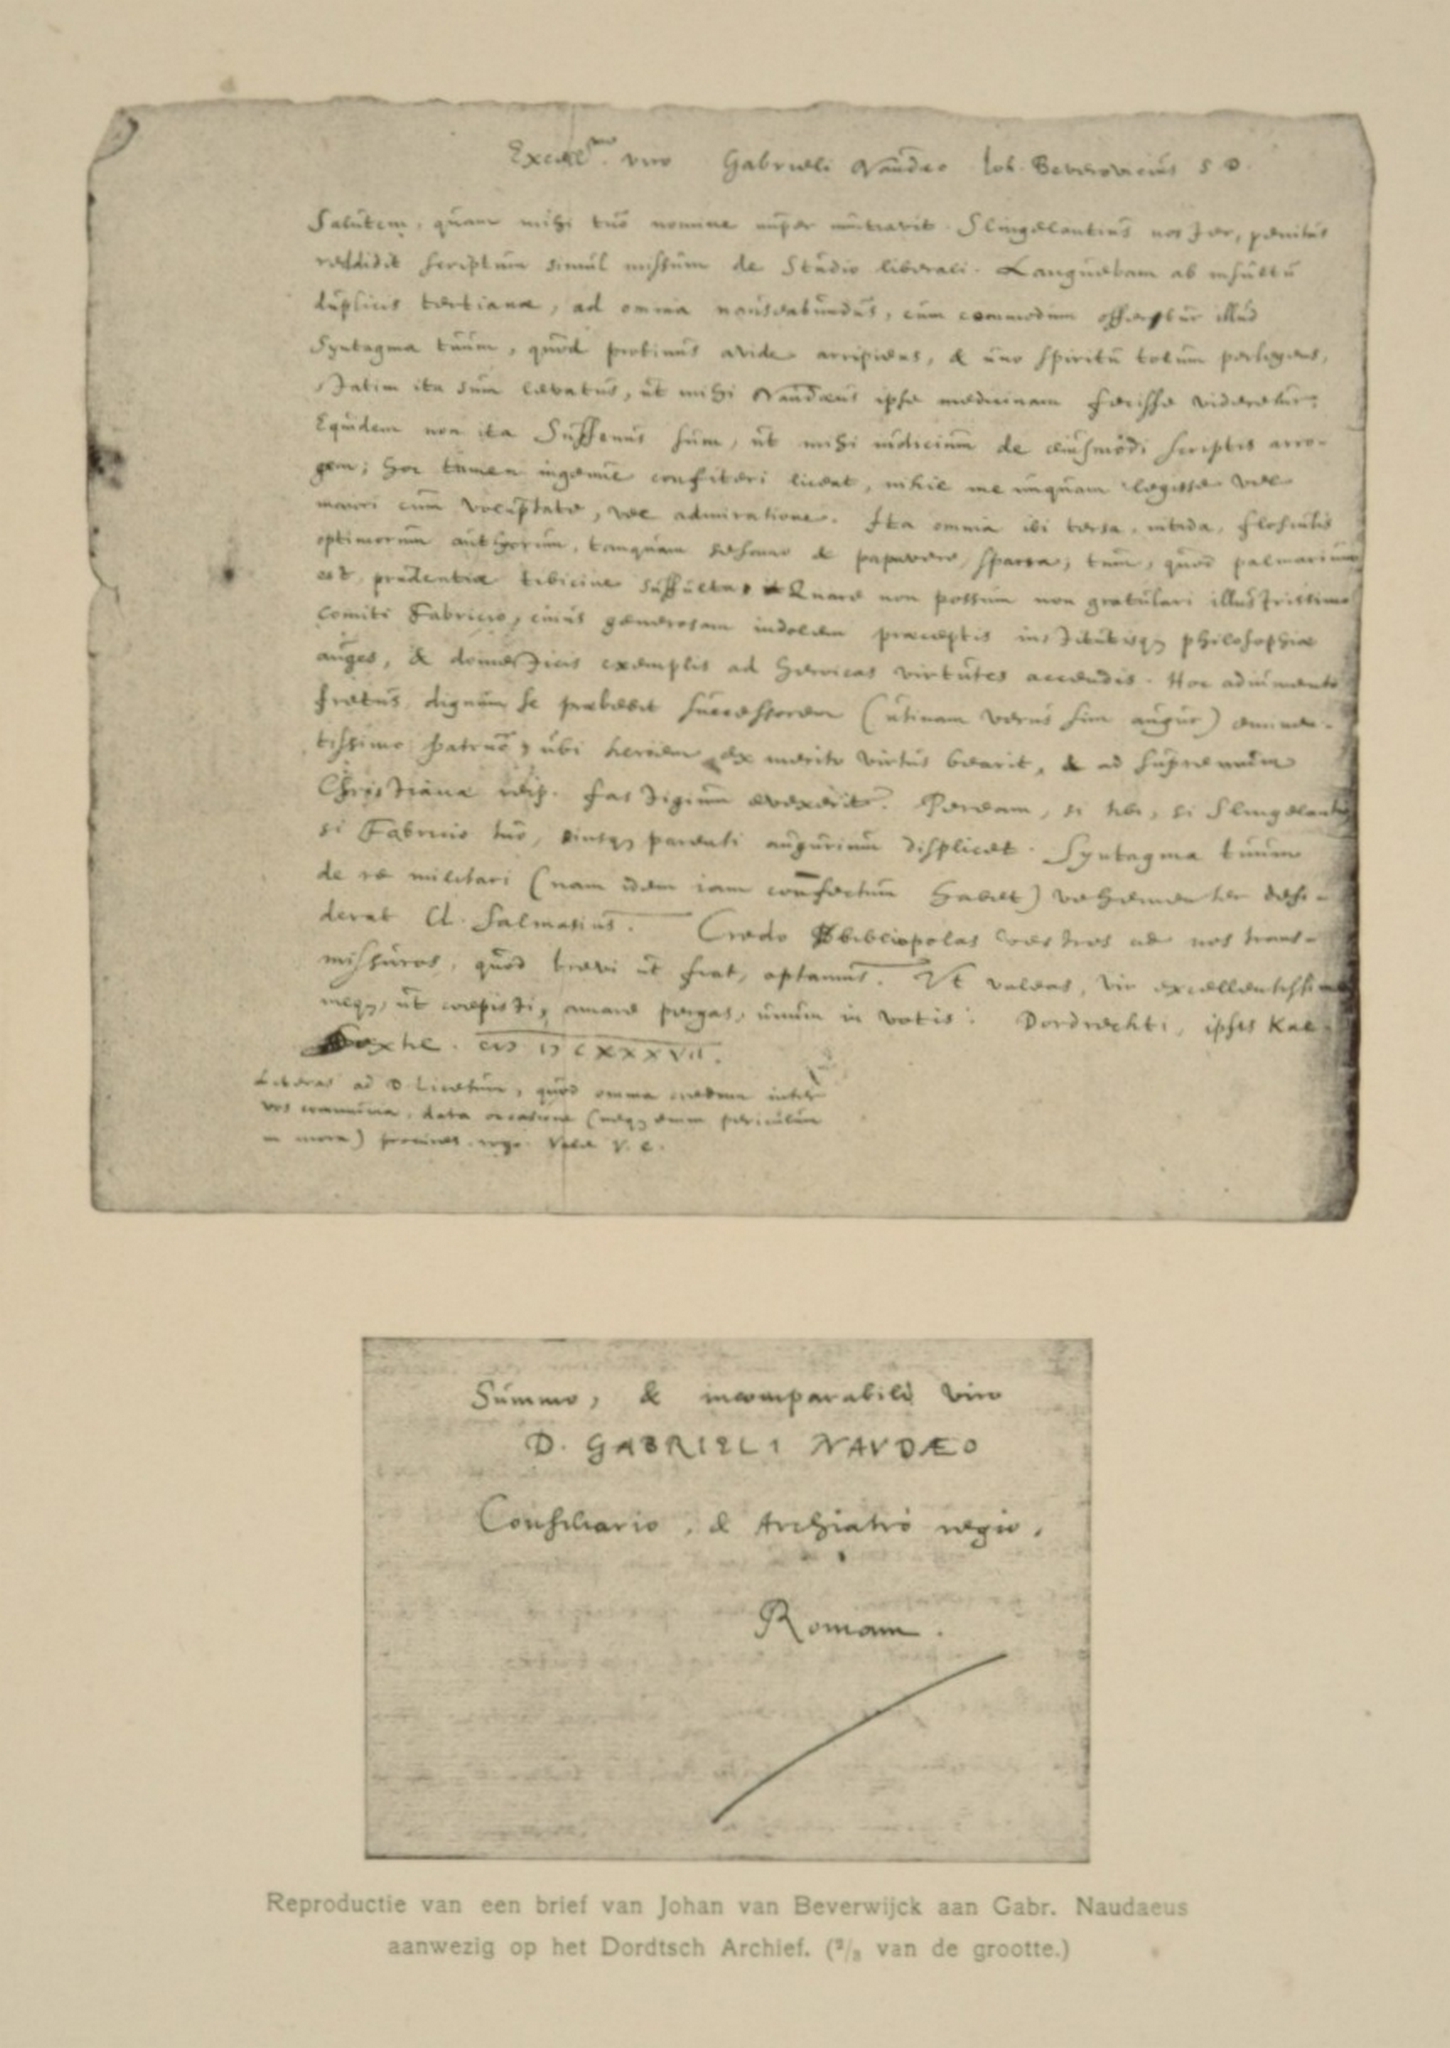 Excell.mo viro Gabrieli Naudæo Ioh. Beverovicius S D.
Salutem, quam mihi tuo nomine nuper nuntiavit Slingelantius noster, penitus
reddidit scriptum simul missum de Studio liberali. Languebam ab insultu
duplicis tertianæ, ad omnia nauseabundus, cum commodum offertur illud
Syntagma tuum, quod protinus avide arripiens, & uno spiritu totum perlegens,
statim ita sum levatus, ut mihi Naudæus ipse medicinam fecisse videretur.
Equidem non ita Suffenus sum, ut mihi iudicium de eiusmodi scriptis arro-
gem; hoc tamen ingenue confiteri liceat, nihil me unquam legisse vel
maiori cum voluptate, vel admiratione. Ita omnia ibi tersa, nitida, flosculis
optimorum authorum, tanquam sesamo & papavere, sparsa; tum, quod palmarium
est, prudentiæ tibicine suffulta. Quare non possum non gratulari illustrissimo
Comiti Fabricio, cuius generosam indolem præceptis institutisq; philosophiæ
auges, & domesticis exemplis ad heroicas virtutes accendis. Hoc adiumento
fretus, dignum se præbebit successorem (utinam verus sim augur) eminen-
tissimo patruo, ubi heroem ex merito virtus bearit, & ad supremum
Christianæ reip. fastigium evexerit. Peream, si tibi, si Slingelantio
si Fabricio tuo, eiusq; parenti augurium displicet. Syntagma tuum
de re militari (nam idem iam confectum habet) vehementer desi-
derat Cl. Salmasius. Credo bibliopolas vestros ad nos trans-
missuros, quod brevi ut fiat, optamus. Ut valeas, vir excellentissime
meq;, ut cœpisti, amare pergas, unum in votis. Dordrechti, ipsis Kal.
Sextil. CIↃ IↃ CXXXVII.
Literas ad D. Licetum, quod omnia credam inter
vos communia, data occasione (neq; enim periculum
in mora) Vale V. C.
Summo, & incomparabili viro
D. GABRIELI NAVDÆO
Consiliario, & Archiatro regio,
Romam.
Reproductie van een brief van Johan van Beverwijck aan Gabr. Naudaeus
aanwezig op het Dordtsch Archief. (²/₃ van de grootte.)